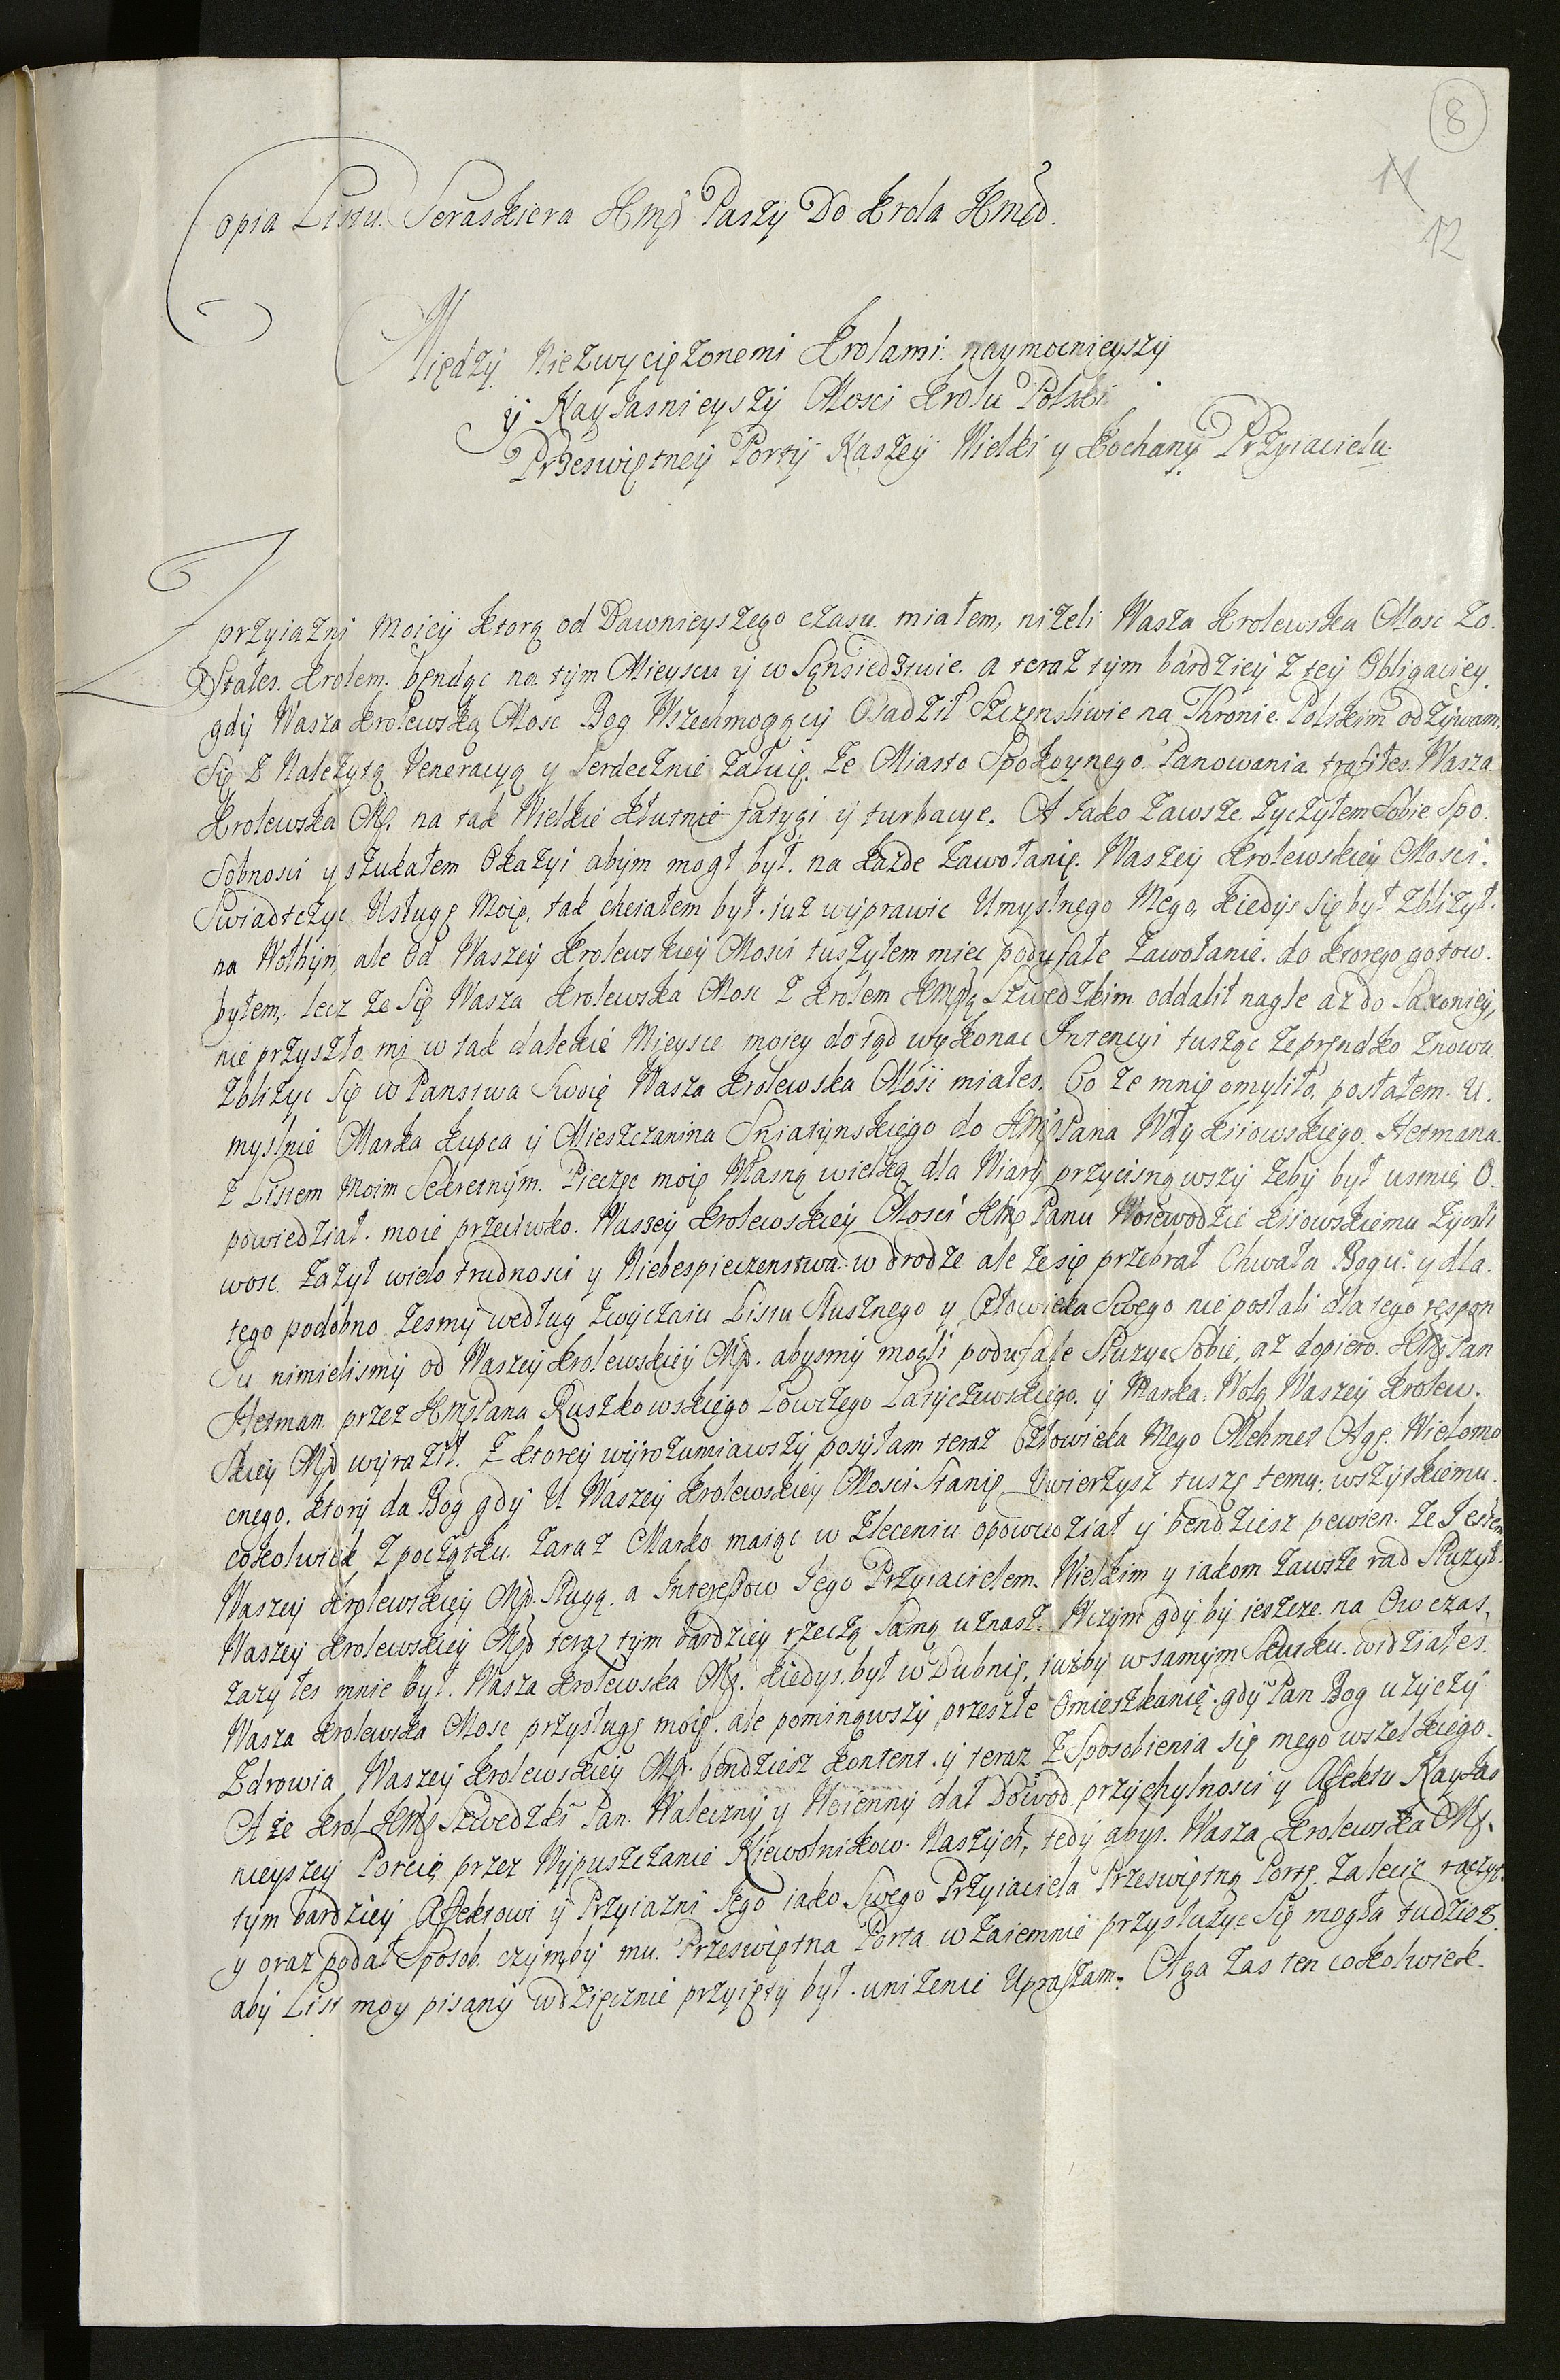 8
11
12
Copia Listu Seraskiera JKmsci Paszy Do Krola JKmsci.
Między Niezwyciężonemi Krolami naymocnieyszy
y Nayiasnieyszy Mosci Krolu Polski
Przeswiętney Porty Naszey Wielki y Kochany Przyiacielu.
Z przyiazni moiey ktorą od Dawnieyszego czasu miałem, niżeli Wasza Krolewska Mosc zo.
Stałes. Krolem. będąc na tym Mieyscu y w Sąnsiedztwie. a teraz tym bardziey z tey Obligaciey
gdy Wasza Krolewską Mosc Bog Wszechmogący Osadził Szczensliwie na Thronie Polskim odzywam.
Się z Należytą Veneracyą y Serdecznie żałuię. że Miasto Spokoynego. Panowania trafiłes. Wasza
Krolewska Mć. na tak Wielkie kłutnie fatygi y turbacye. A iako zawsze. zyczyłem Sobie Spo.
Sobnosci y szukałem Okazyi abym mogł był. na każde zawołanie. Waszey Krolewskiey Mosci.
Swiadczyc Usługę Moię, tak chciałem był. iuz wyprawic Umyslnego Mego, kiedys się był zbliżył.
na Wołhyn, ale od Waszey Krolewskiey Mosci tuszyłem miec podufałe zawołanie. do ktorego gotow.
byłem,. lecz że Się Wasza Krolewska Mosc z Krolem Szwedzkim oddalił nagle aż do Saxoniey,
nie przyszło mi w tak dalekie Mieysce moiey dotąd wykonac Intencyi tusząc że prendko znowu.
zbliżyc Się w Panstwa Swoię Wasza Krolewska Mość miałes. Co że mnię omyliło, posłałem. U.
myslnie Marka kupca y Mieszczanina Sniatynskiego do Pana Wdy Kiiowskiego. Hetmana.
z Listem Moim Sekretnym. Pieczęc moię Własną wielką dla Wiary przycisnąwszy żeby był ustnie O.
powiedział. moie przeciwko. Waszey Krolewskiey Mosci Panu Woiewodzie Kiiowskiemu Zyczli
wosc zażył wielo trudnosci y Niebespieczenstwa w drodze ale że się przebrał Chwała Bogu. y dla.
tego podobno żesmy według zwyczaiu Listu Słusznego y Człowieka Swego nie posłali dla tego respon
Su nimielismy od Waszey Krolewskiey Mci. abysmy mogli podufale Służyc Sobie, aż dopiero. Pan
Hetman. przez Pana Ruszkowskiego Łowczego Latyczewskiego. y Marka. Wolą Waszey Krolew.
Skiey Mci wyraził. z ktorey wyrozumiawszy posyłam teraz Człowieka Mego Mehmet Agę. Wielomo
cnego. ktory da Bog gdy U Waszey Krolewskiey Mosci Stanie Uwierzysz tuszę temu. wszystkiemu.
cokolwiek z początku. zaraz Marko maiąc w zleceniu opowiedział y bendziesz pewien. że Jestem
Waszey Krolewskiey Mci. Sługą. a Interessow Jego Przyiacielem. Wielkim y iakom zawsze rad Służył.
Waszey Krolewskiey Mci teraz tym bardziey rzeczą Samą uznasz. Wczym gdy by ieszcze. na Ow czas,
zazyłes mnie był. Wasza Krolewska Mć. kiedys. był w Dubnie, iużby w samym Skutku. widziałes.
Wasza Krolewska Mosc przysługę moię. ale pominąwszy przeszłe Omieszkanie. gdy Pan Bog użyczy
Zdrowia Waszey Krolewskiey Mć. bendziesz kontent. y teraz z Sposobienia się mego wszelkiego.
A że Krol Szwedzki Pan. Waleczny y Woienny dał Dowod. przychylnosci y Affektu Nayias
nieyszey Porcie, przez Wypuszczanie Niewolnikow Naszych, tedy abys. Wasza Krolewska Mć.
tym bardziey Affektowi y Przyiazni Jego iako Swego Przyiaciela Przeswiętną Portę. zalecic raczył.
y oraz podał Sposob. czymby mu. Przeswiętna Porta. wzaiemnie przysłużyc Się mogła tudziesz.
aby List moy pisany wdzięcznie przyięty był. unizenie Upraszam. Aga zas ten cokolwiek.